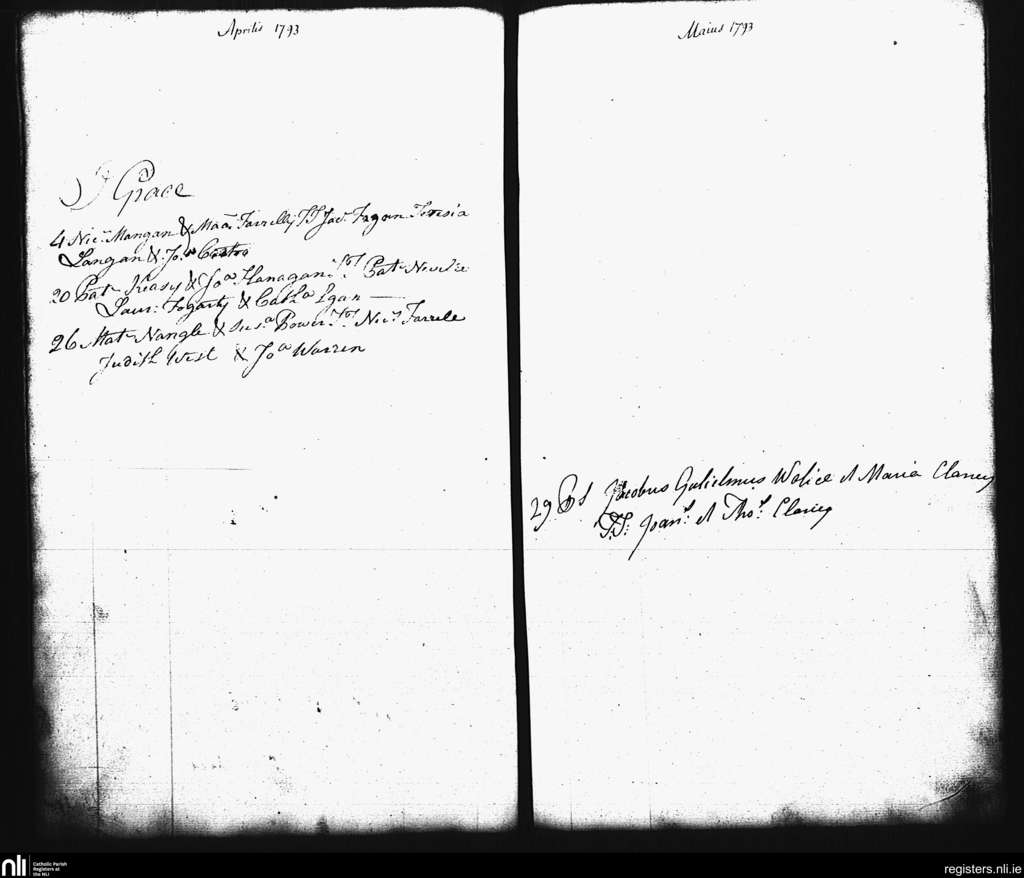 Aprilis 1793
J Grace
4 Nic: Mangan & Maa Farrelly TT Jac: Fagan Teresia
Langan & Joa Castro
20 Pat: Keasy & Joa Flanagan Tes Pat:
Laur: Fogarty & Cath.a Egan
26 Mat: Nangle & Sus.a Power Tes Nics Farrele
Judith West & Joa Warren
Maius 1793
29 Jacobus Gulielmus Wolice et Maria Clancy
TT: Joans et Thos Clancy
nli
Catholic Parish
Registers at
the NLI
registers.nli.ie